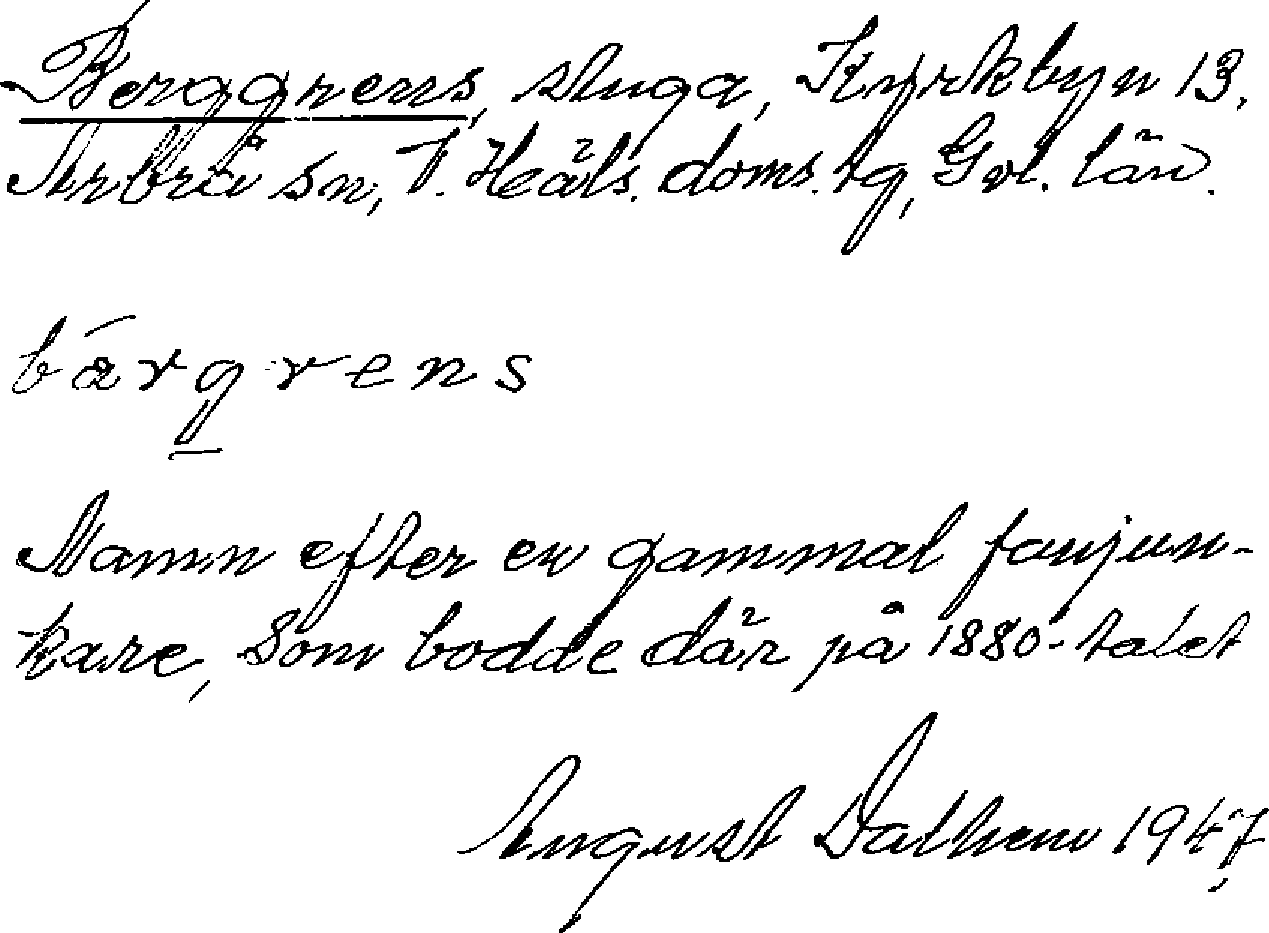 Berggrens, stuga, Kyrkbyn 13.
Arbrå sn, V. Häls. doms. tg, Gvl. län.
bárgrens
Namn efter en gammal fanjun-
kare, som bodde där på 1880-talet
August Dalhem 1947